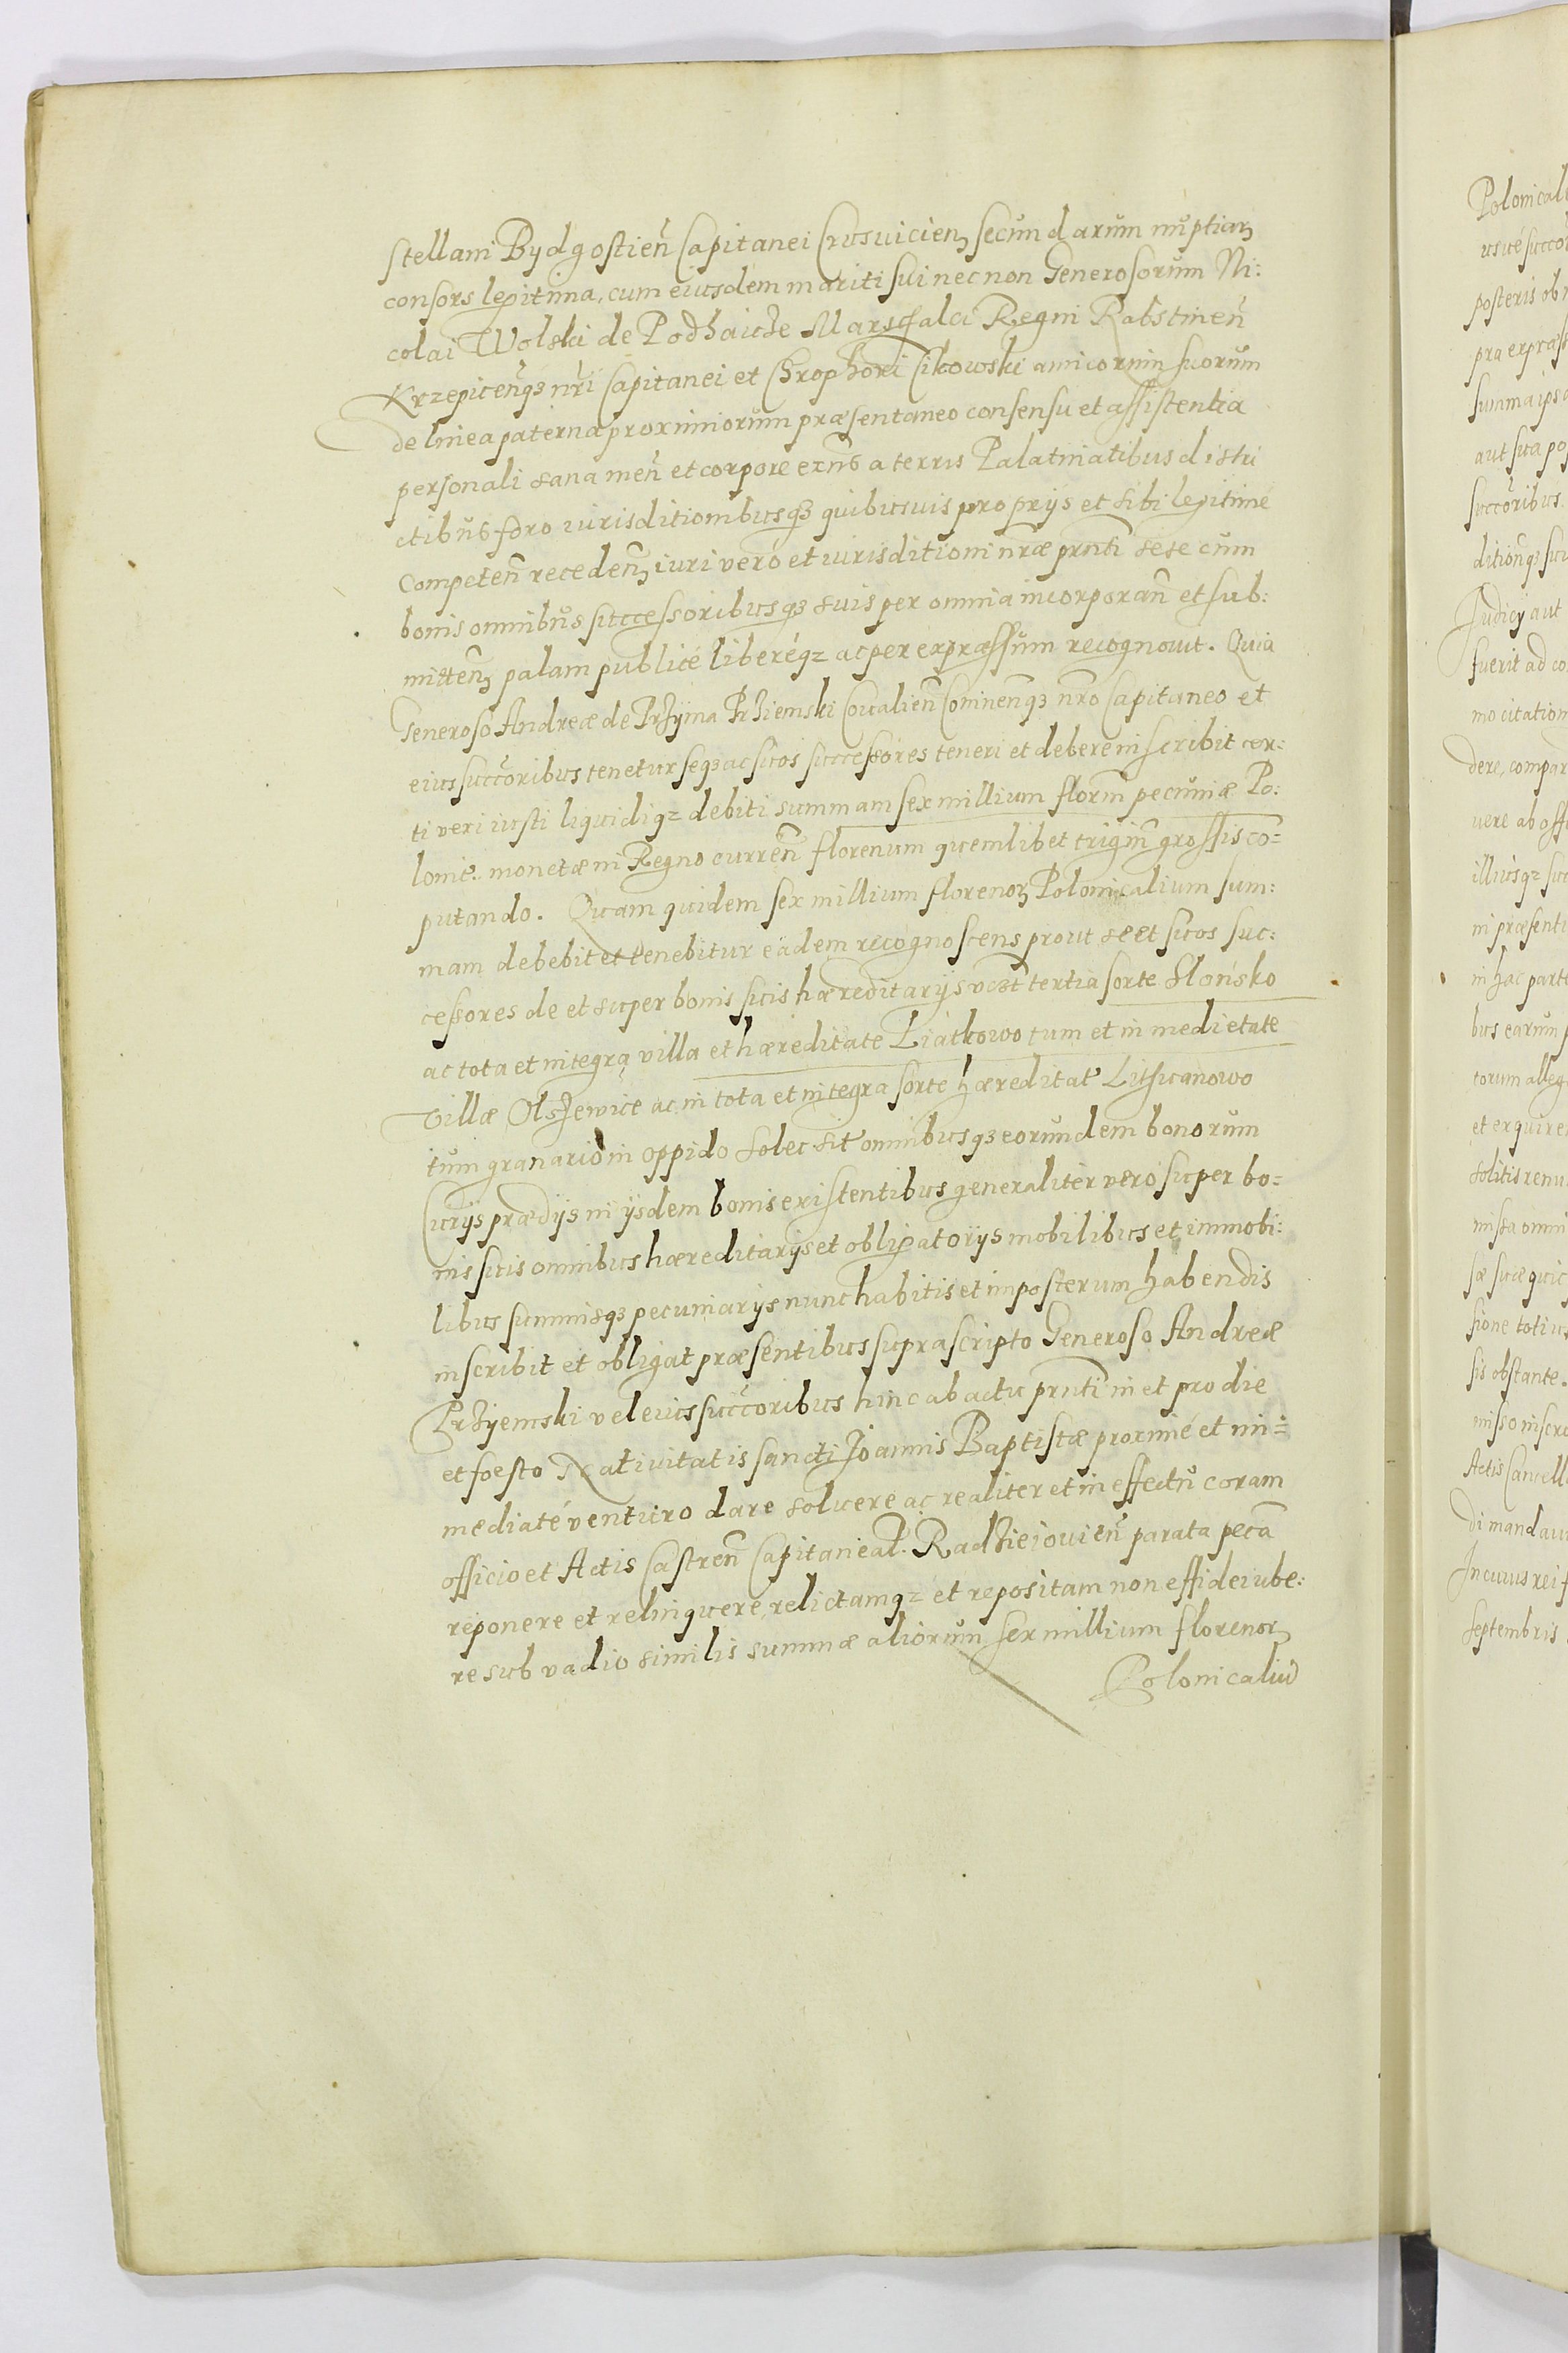 stellani Bydgostien̄ Capitanei Crusuicienꝫ secundarum nuptiarꝫ
consors legitima, cum eiusdem mariti sui necnon Generosorum Ni:
colai Wolski de Podhaicze Marschalci Regni Rabstinen̄
Krzepicen̄qꝫ nr̄i Capitanei et Chrophori Cikowski amicorum suorum
de linea paterna proximiorum præsentaneo consensu et assistentia
personali sana men̄ et corpore exn̄s a terris Palatinatibus distri
ctibus foro iurisditionibusqꝫ quibusuis proprijs et sibi legitimé
Competen̄ recedenꝫ iuri vero et iurisditioni nr̄æ prn̄ti sese cum
bonis omnibus successoribusqꝫ suis per omnia incorporan̄ et sub:
mittenꝫ palam publicé liberéqꝫ ac per expræssum recognouit. Quia
Generoso Andreæ de Przyima Prziemski Coualien̄ Coninen̄qꝫ nr̄o Capitaneo et
eius succ̄oribus tenetur seqꝫ ac suos successores teneri et debere inscribit cer:
ti veri iusti liquidiqꝫ debiti summam sex millium florin̄ pecuniæ Po:
lonic. monetæ in Regno curren̄ florenum quemlibet trigin̄ grossis co=
putando. Quam quidem sex millium florenorꝫ Polonicalium sum:
mam debebit et tenebitur eadem recognoscens prout se et suos suc:
cessores de et super bonis suis hæreditarijs vczt tertia sorte Słońsko
ac tota et integra villa et hæreditate Liatkowo tum et in medietate
Villæ Olszewice ac in tota et integra sorte hæreditat̄ Lithuanowo
tum granario in oppido Solec sit̄ omnibusqꝫ eorundem bonorum
Curijs prædijs in ijsdem bonis existentibus generaliter vero super bo=
nis suis omnibus hæreditarijs et obligatorijs mobilibus et immobi:
libus summisqꝫ pecuniarijs nunc habitis et imposterum habendis
inscribit et obligat præsentibus suprascripto Generoso Andreæ
Przyemski vel eius succ̄oribus hinc ab actu prn̄ti in et pro die
et foesto Natiuitatis sancti Joannis Baptistæ proximé et im=
mediaté venturo dare soluere ac realiter et in effectu coram
officio et Actis Castren̄ Capitaneal. Radzieiouien̄ parata pec̄a
reponere et relinquere, relictamqꝫ et repositam non effideiube:
re sub vadio similis summæ aliorum sex millium florenorꝫ
Polonicaliu̅
Polonical
posteris ob
summa ips
succ̄oribus
Judicij aut
fuerit ad co
mo citation
dere, compar
uere ab offi
in præsenti
in hac parte
bus earum p
torum alleg
et exquire
missa omni
sione totius
sis obstante.
Actis Cancell
di mandaui
In cuius rei f
Septembris